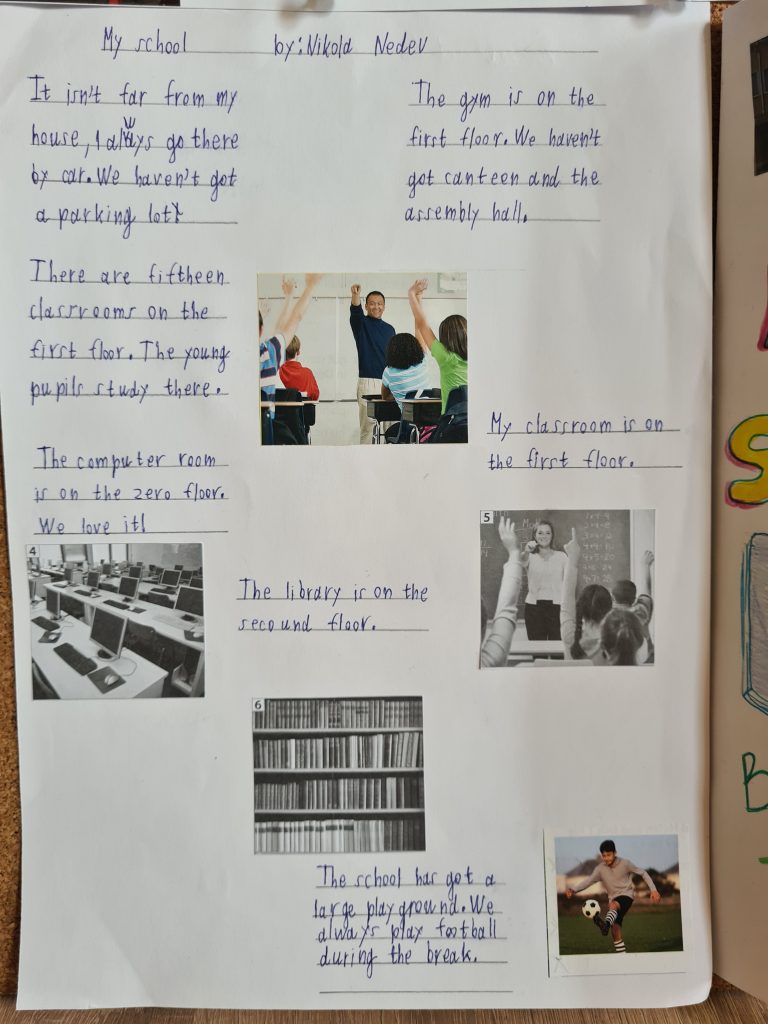 My school by: Nikold Nedev
It isn't far from my
house, I always go there
by car. We haven't got
a parking lot.
There are fifteen
classrooms on the
first floor. The young
pupils study there.
The computer room
is on the zero floor.
We love it!
4
The gym is on the
first floor. We haven't
got canteen and the
assembly hall.
My classroom is on
the first floor.
5
The library is on the
secound floor.
6
The school has got a
large playground. We
always play football
during the break.